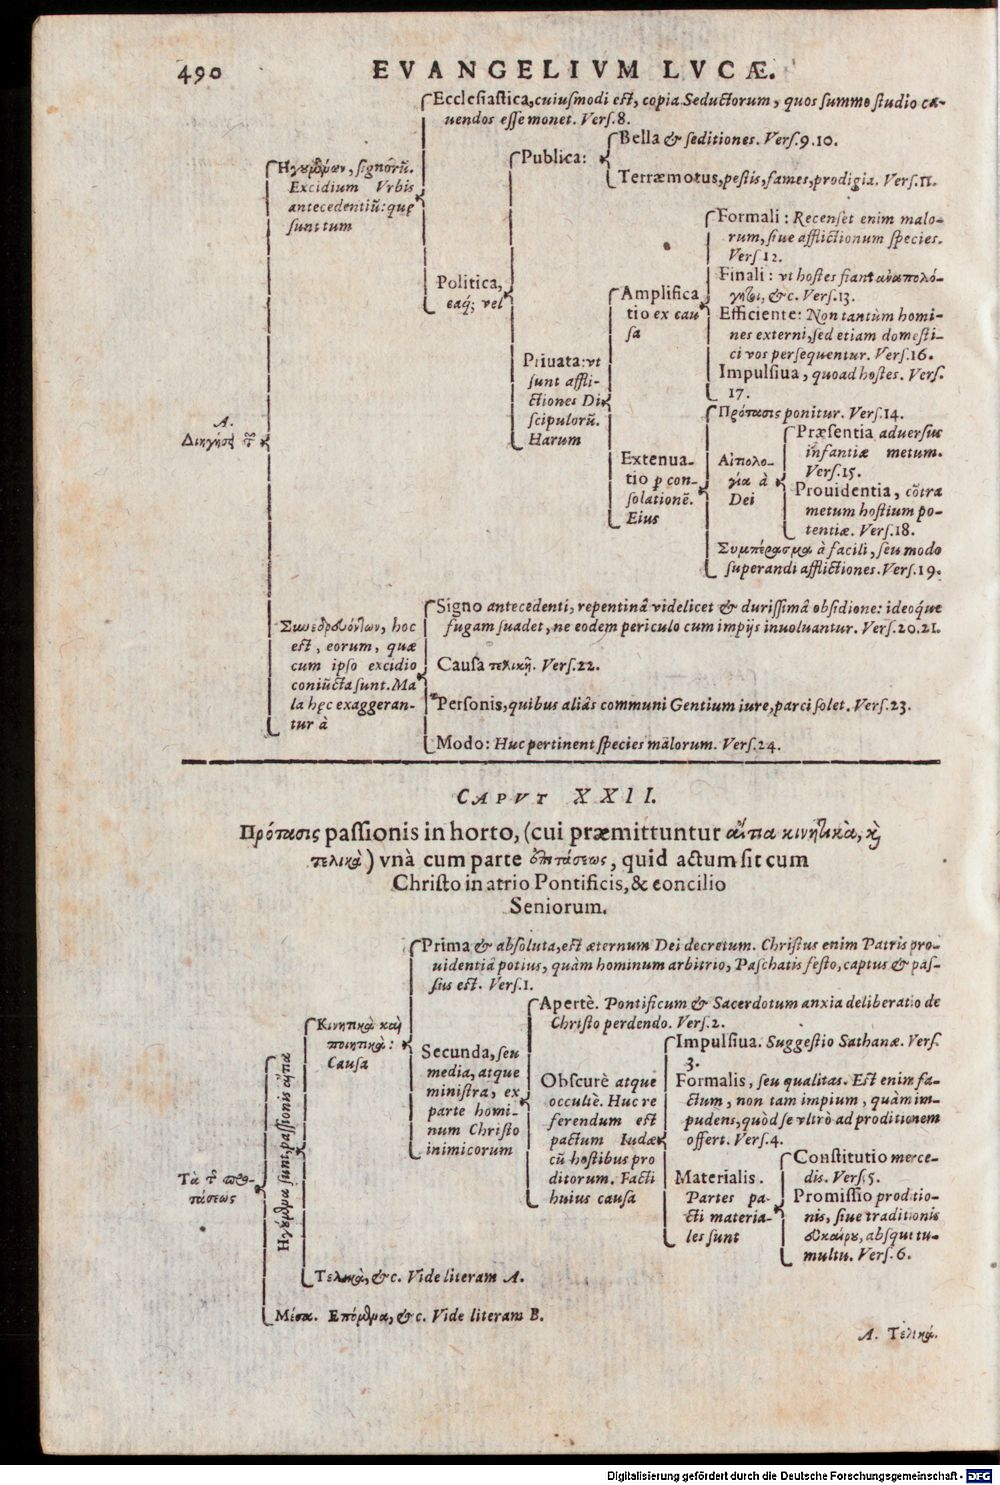 490
EVANGELIVM LVCÆ.
Ecclesiastica, cuiusmodi est, copia Seductorum, quos summo studio ca-
uendos esse monet. Vers.8.
Publica:
Bella & seditiones. Vers.9.10.
Terræmotus, pestis, fames, prodigia. Vers.11.
signorũ.
Excidium Vrbis
antecedentiũ: quę
sunt tum
Politica,
eaq́; vel
Priuata: vt
sunt affli-
ctiones Di
scipulorũ.
Harum
Amplifica
tio ex cau
sa
Formali: Recenset enim malo-
rum, siue afflictionum species.
Vers 12.
Finali: vt hostes fiant ἀναπολό-
&c. Vers.13.
Efficiente: Non tantùm homi-
nes externi, sed etiam domesti-
ci vos persequentur. Vers.16.
Impulsiua, quoad hostes. Vers.
17.
Extenua-
tio p con-
solationẽ.
Eius
Πρότασις ponitur. Vers.14.
Απολο-
γία à
Dei
Præsentia aduersus
infantiæ metum.
Vers.15.
Prouidentia, cõtra
metum hostium po-
tentiæ. Vers.18.
Συμπέρασμα à facili, seu modo
superandi afflictiones. Vers.19.
A.
Διηγήσς
hoc
est, eorum, quæ
cum ipso excidio
coniũcta sunt. Ma
la hęc exaggeran-
tur à
Signo antecedenti, repentinâ videlicet & durissimâ obsidione: ideoq́ue
fugam suadet, ne eodem periculo cum impijs inuoluantur. Vers.20.21.
Causa τελικῇ. Vers.22.
Personis, quibus aliâs communi Gentium iure, parci solet. Vers.23.
Modo: Huc pertinent species malorum. Vers.24.
CAPVT XXII.
Πρότασις passionis in horto, (cui præmittuntur αἴτια κινητικὰ, κỳ
τελικὰ) vnà cum parte ἐπιτάσεως, quid actum sit cum
Christo in atrio Pontificis, & concilio
Seniorum.
Τὰ τ͂ προ-
τάσεως
Ηγούμενα sunt, passionis αἴτια
Κινητικὰ καὶ
ποιητικὰ:
Causa
Prima & absoluta, est æternum Dei decretum. Christus enim Patris pro-
uidentiâ potius, quàm hominum arbitrio, Paschatis festo, captus & pas-
sus est. Vers.1.
Secunda, seu
media, atque
ministra, ex
parte homi-
num Christo
inimicorum
Apertè. Pontificum & Sacerdotum anxia deliberatio de
Christo perdendo. Vers.2.
Obscurè atque
occultè. Huc re
ferendum est
pactum Iudæ
cũ hostibus pro
ditorum. Facti
huius causa
Impulsiua. Suggestio Sathanæ. Vers.
3.
Formalis, seu qualitas. Est enim fa-
ctum, non tam impium, quàm im-
pudens, quòd se vltrò ad proditionem
offert. Vers.4.
Materialis.
Partes pa-
cti materia-
les sunt
Constitutio merce-
dis. Vers.5.
Promissio proditio-
nis, siue traditionis
εὐκαίρου, absque tu-
multu. Vers.6.
Τελικὰ, &c. Vide literam A.
Μέσα. Επόμενα, &c. Vide literam B.
A. Τελικά.
Digitalisierung gefördert durch die Deutsche Forschungsgemeinschaft - DFG